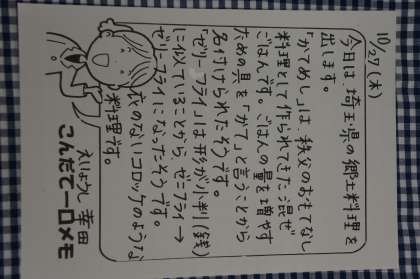 10/27(木)
今日は、埼玉県の郷土料理を
出します。
「かてめし」は、秩父のおもてなし
料理として作られてきた混ぜ
ごはんです。ごはんの量を増やす
ための具を「かて」と言うことから
名付けられたそうです。
「ゼリーフライ」は形が小判(銭)
に似ていることから、ゼニフライ→
ゼリーフライになったそうです。
衣のないコロッケのような
料理です。
こんだて一口メモ